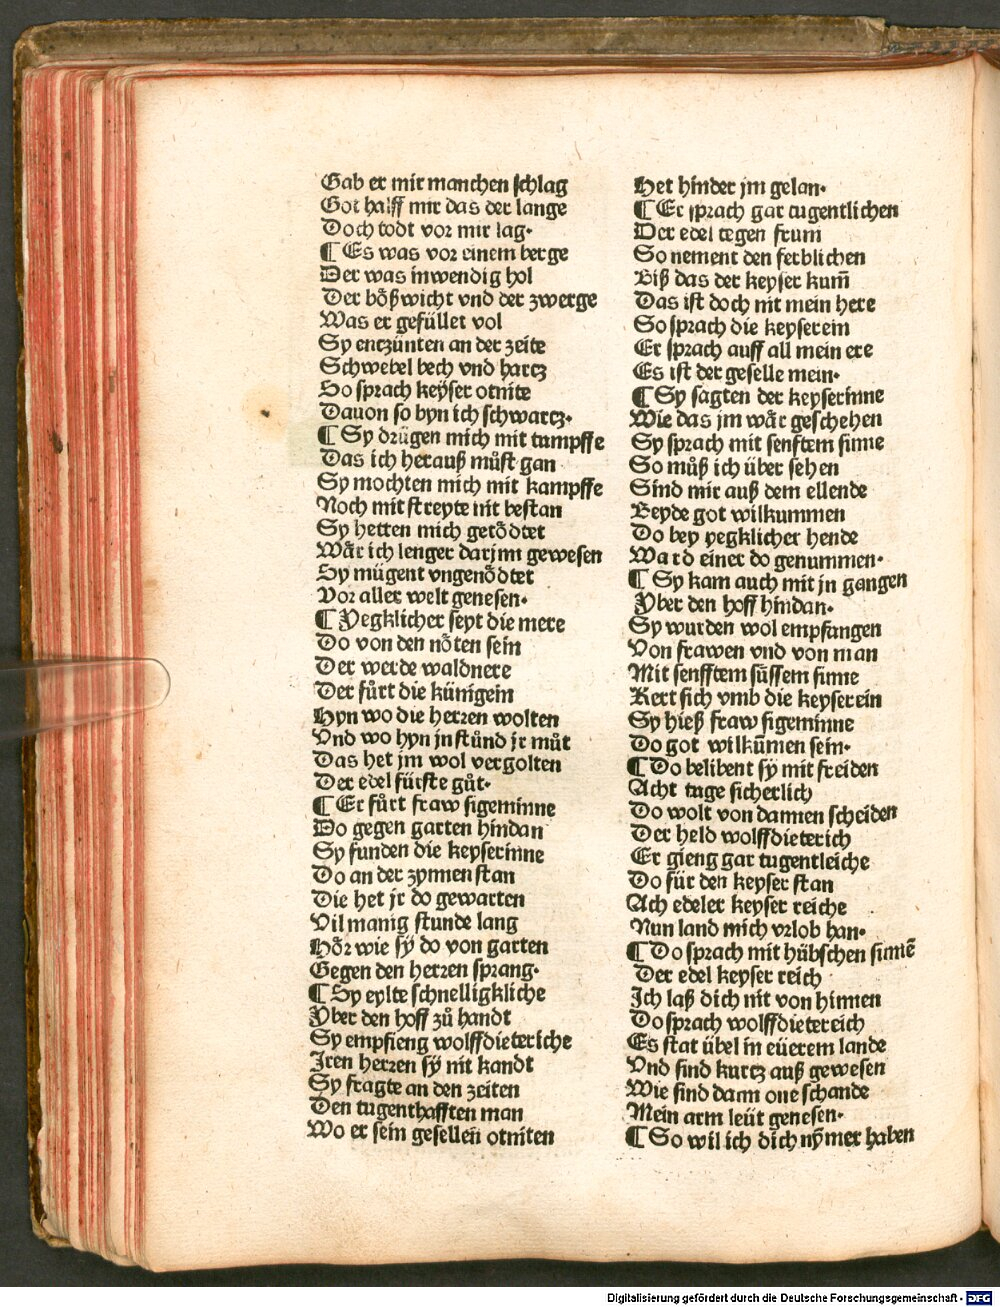 Gab er mir manchen schlag
Got halff mir das der lange
Doch todt vor mir lag.
¶ Es was vor einem berge
Der was inwendig hol
Der bößwicht vnd der zwerge
Was er gefüllet vol
Sy entzünten an der zeite
Schwebel bech vnd hartz
So sprach keÿser otnite
Dauon so byn ich schwartz.
¶ Sy drügen mich mit tampffe
Das ich herauß můst gan
Sy mochten mich mit kampffe
Noch mit streyte nit bestan
Sy hetten mich getödtet
Wär ich lenger darjnn gewesen
Sy mügent vngenödtet
Vor aller welt genesen.
¶ Yegklicher seyt die mere
Do von den nöten sein
Der werde waldnere
Der fůrt die künigein
Hyn wo die herren wolten
Vnd wo hyn jn stůnd jr můt
Das het jm wol vergolten
Der edel fürste gůt.
¶ Er fůrt fraw sigeminne
Do gegen garten hindan
Sy funden die keyserinne
Do an der zynnen stan
Die het jr do gewarten
Vil manig stunde lang
Hör wie sÿ do von garten
Gegen den herren sprang.
¶ Sy eylte schnelligkliche
Yber den hoff zů handt
Sy empfieng wolffdieteriche
Iren herren sÿ nit kandt
Sy fragte an den zeiten
Den tugenthafften man
Wo er sein gesellen otniten
Het hinder jm gelan.
¶ Er sprach gar tugentlichen
Der edel tegen frum
So nement den ferblichen
Biß das der keyser kum̄
Das ist doch nit mein here
So sprach die keyserein
Er sprach auff all mein ere
Es ist der geselle mein.
¶ Sy sagten der keyserinne
Wie das jm wär geschehen
Sy sprach mit senftem sinne
So můß ich über sehen
Sind mir auß dem ellende
Beyde got wilkummen
Do bey yegklicher hende
Ward einer do genummen.
¶ Sy kam auch mit jn gangen
Yber den hoff hindan.
Sy wurden wol empfangen
Von frawen vnd von man
Mit senfftem süssem sinne
Kert sich vmb die keyserein
Sy hieß fraw sigeminne
Do got wilkūmen sein.
¶ Do belibent sÿ mit freiden
Acht tage sicherlich
Do wolt von dannen scheiden
Der held wolffdieterich
Er gieng gar tugentleiche
Do für den keyser stan
Ach edeler keyser reiche
Nun land mich vrlob han.
¶ Do sprach mit hübschen sinnē
Der edel keyser reich
Ich laß dich nit von hinnen
Do sprach wolffdietereich
Es stat übel in eüerem lande
Vnd sind kurtz auß gewesen
Wie sind dann one schande
Mein arm leüt genesen.
¶ So wil ich dich nÿmer haben
Digitalisierung gefördert durch die Deutsche Forschungsgemeinschaft - DFG